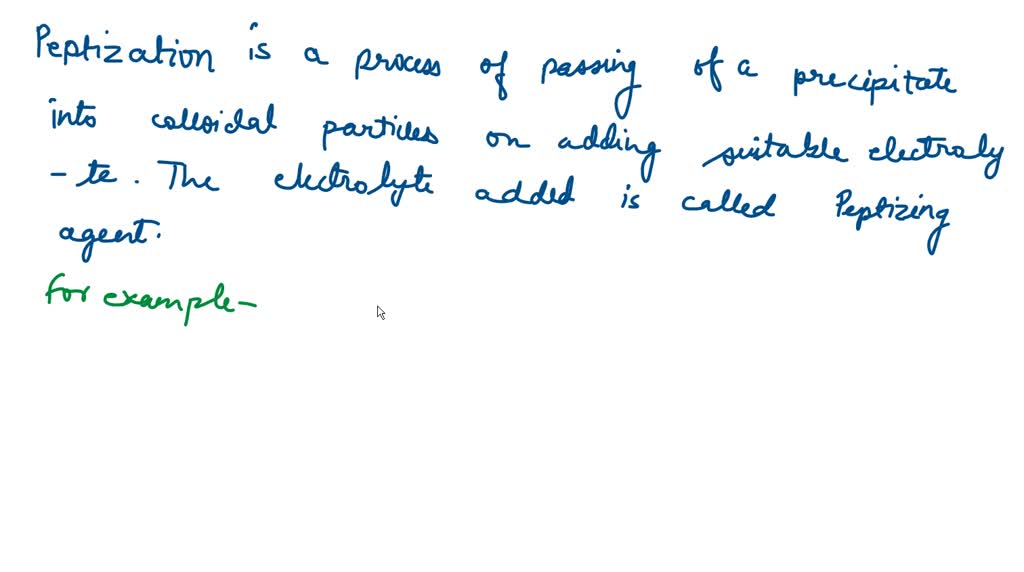 Peptization is a process of passing of a precipitate
into colloidal particles on adding suitable electroly
- te. The electrolyte added is called Peptizing
agent.
for example-